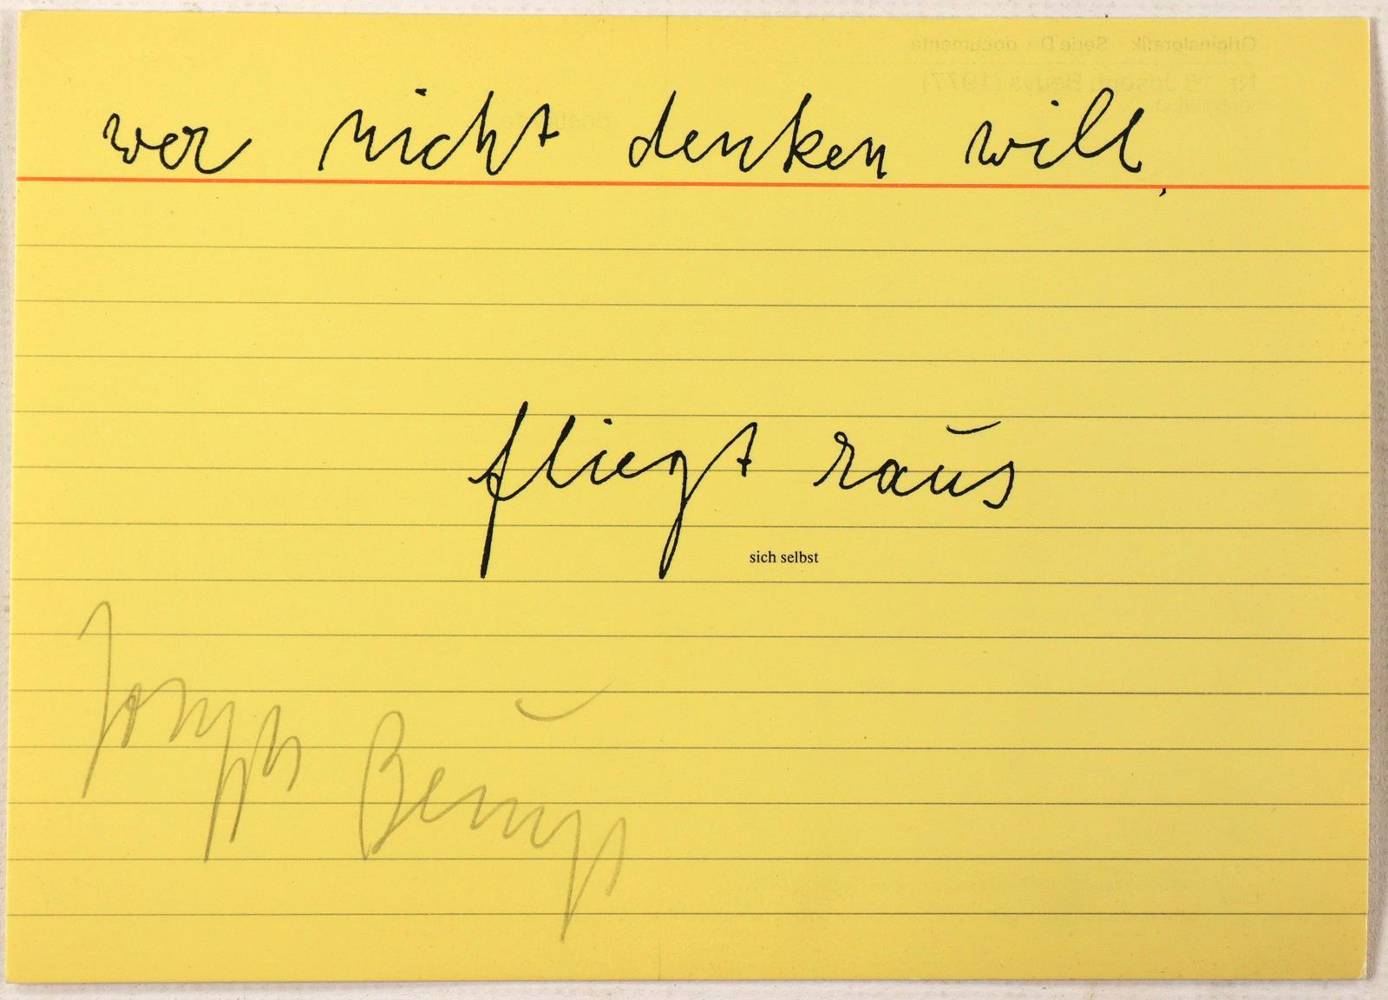 wer nicht denken will,
fliegt raus
sich selbst
Joseph Beuys
Originalgrafik · Serie D · documenta
Joseph Beuys (1977)